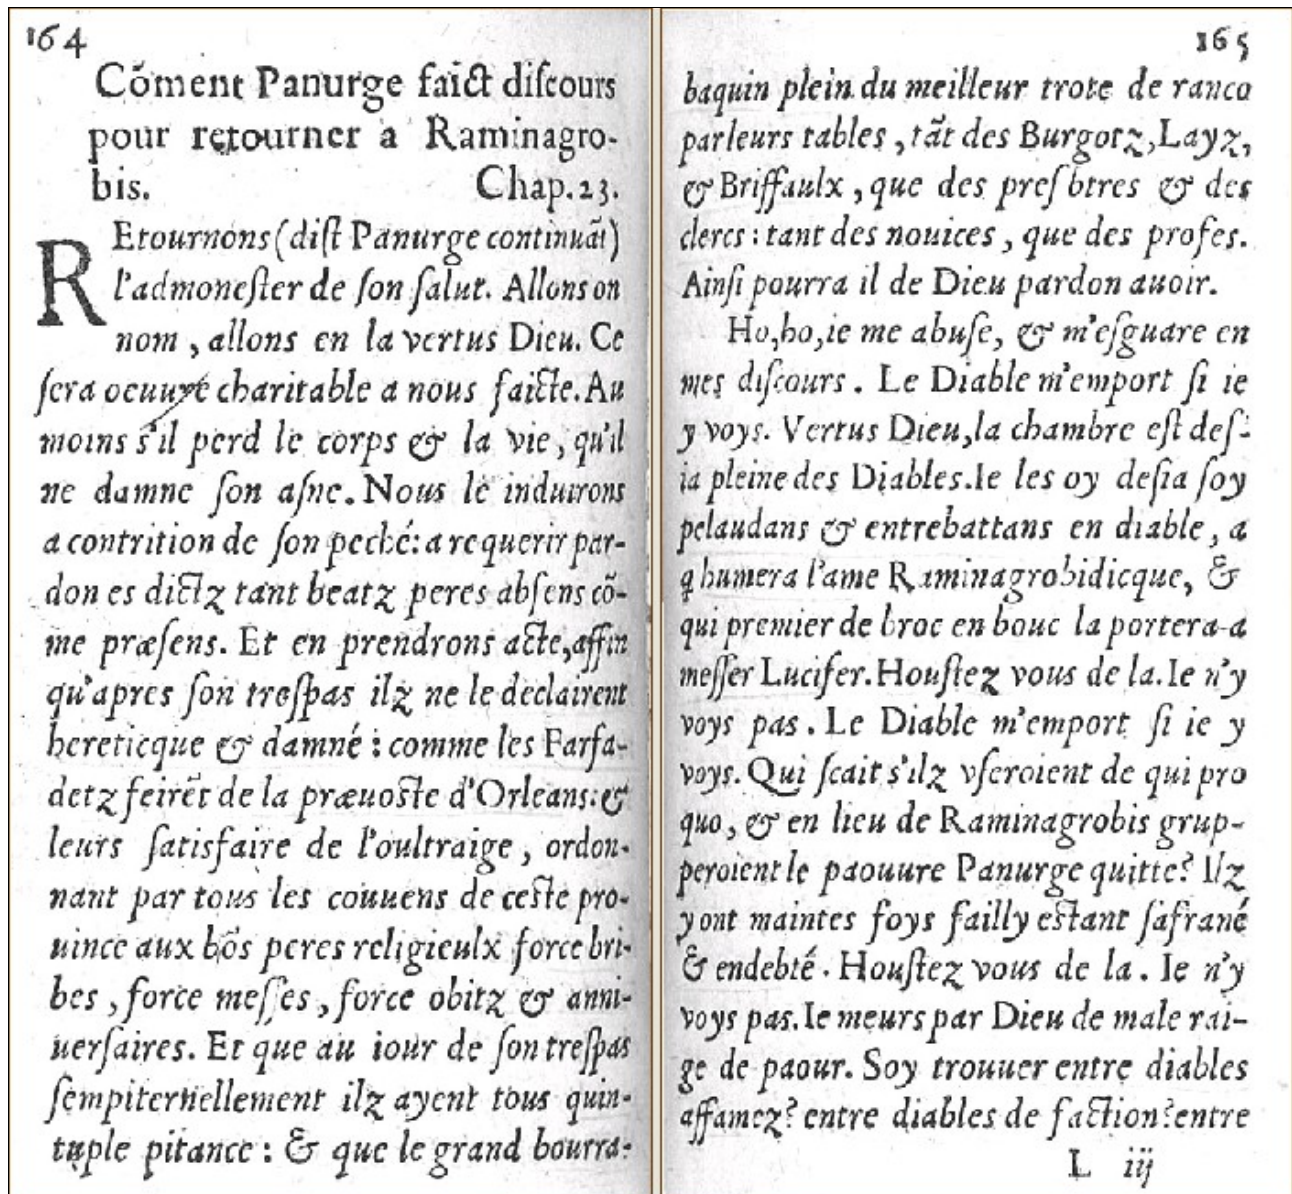 164
Cõment Panurge faict diſcours
pour retourner a Raminagro-
bis. Chap.23.
REtournons (diſt Panurge continuãt)
l'admoneſter de ſon ſalut. Allons on
nom, allons en la vertus Dieu. Ce
ſera oeuure charitable a nous faicte. Au
moins s'il perd le corps & la vie, qu'il
ne damne ſon aſne. Nous le induirons
a contrition de ſon peché: a requerir par-
don es dictz tant beatz peres abſens cõ-
me præſens. Et en prendrons acte, affin
qu'apres ſon treſpas ilz ne le declairent
hereticque & damné: comme les Farfa-
detz feirẽt de la præuoſte d'Orleans: &
leurs ſatisfaire de l'oultraige, ordon-
nant par tous les couuens de ceſte pro-
uince aux bõs peres religieulx force bri-
bes, force meſſes, force obitz & anni-
uerſaires. Et que au iour de ſon treſpas
ſempiternellement ilz ayent tous quin-
tuple pitance: & que le grand bourra-
165
baquin plein du meilleur trote de ranco
par leurs tables, tãt des Burgotz, Layz,
& Briffaulx, que des preſbtres & des
clercs: tant des nouices, que des profes.
Ainſi pourra il de Dieu pardon auoir.
Ho, ho, ie me abuſe, & m'eſguare en
mes diſcours. Le Diable m'emport ſi ie
y voys. Vertus Dieu, la chambre eſt deſ-
ia pleine des Diables. Ie les oy deſia ſoy
pelaudans & entrebattans en diable, a
q humera l'ame Raminagrobidicque, &
qui premier de broc en bouc la portera a
meſſer Lucifer. Houſtez vous de la. Ie n'y
voys pas. Le Diable m'emport ſi ie y
voys. Qui ſcait s'ilz vſeroient de qui pro
quo, & en lieu de Raminagrobis grup-
peroient le paouure Panurge quitte? Ilz
y ont maintes foys failly eſtant ſafrané
& endebté. Houſtez vous de la. Ie n'y
voys pas. Ie meurs par Dieu de male rai-
ge de paour. Soy trouuer entre diables
affamez? entre diables de faction? entre
L iij